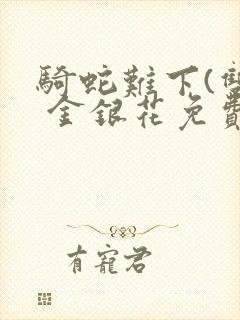 騎蛇難下(雙
金銀花免費
有寵君